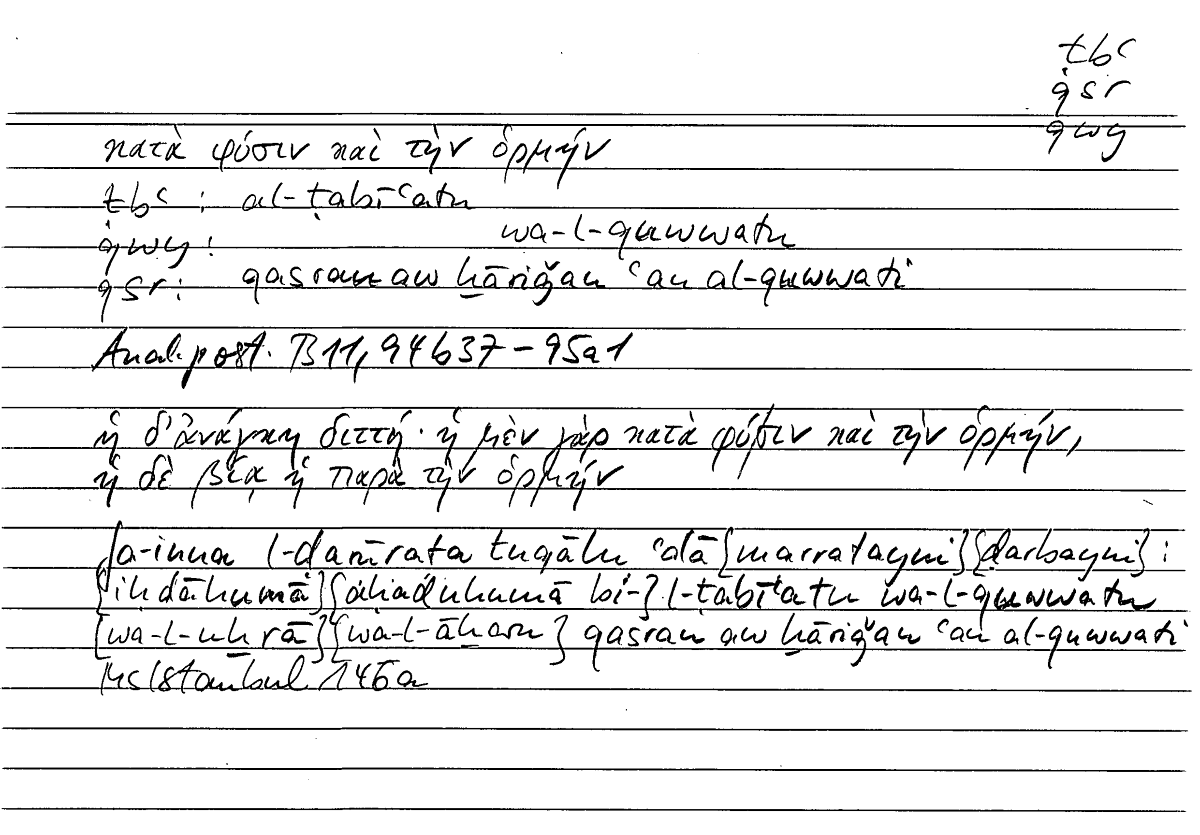 ṭbʿ
qsr
qwy
κατὰ φύσιν καὶ τὴν ὁρμήν
ṭbʿ : al-ṭabīʿatu
qwy : wa-l-quwwatu
qsr : qasran aw ḫāriǧan ʿan al-quwwati
Anal. post. B11, 94b37–95a1
ἡ δ᾽ἀνάγκη διττή· ἡ μὲν γὰρ κατὰ φύσιν καὶ τὴν ὁρμήν,
ἡ δὲ βίᾳ ἡ παρὰ τὴν ὁρμήν
fa-inna l-ḍarūrata tuqālu ʿalā [marratayni] {ḍarbayni} :
[iḥdāhumā] {aḥaduhumā bi-} l-ṭabīʿatu wa-l-quwwatu
[wa-l-uḫrā] {wa-l-āḫaru} qasran aw ḫāriǧan ʿan al-quwwati
Ms Istanbul 146a